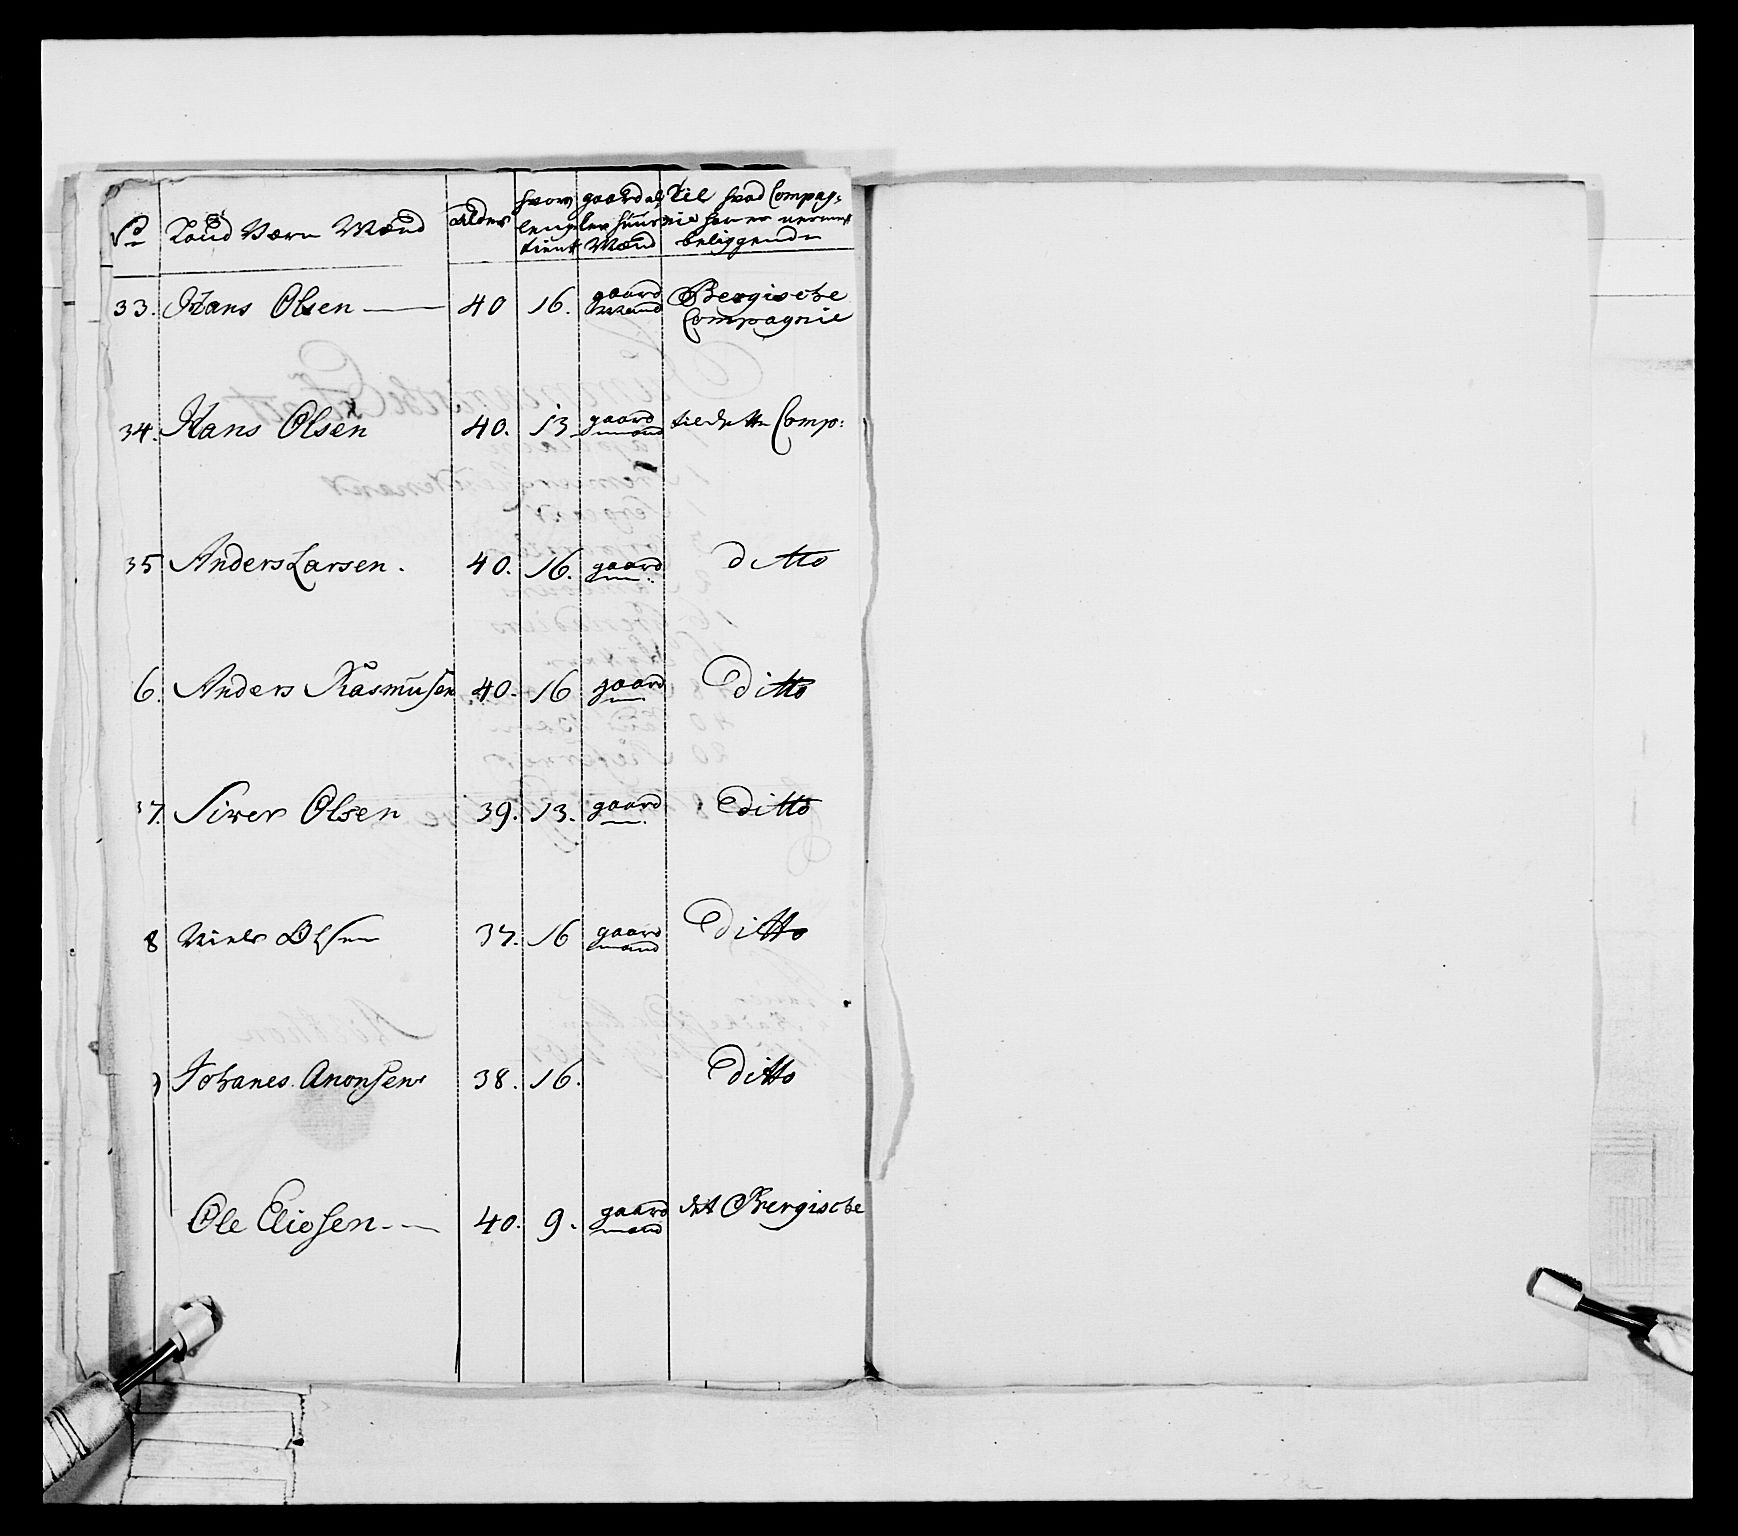 No Land Værn Mænd alder hvor længe tient gaard eller huus Mænd til hvad Compagnie han er nermest beliggende
33. Hans Olsen 40 16. gaard mand Bergische Compagnie
34. Hans Olsen 40. 13 gaard mand til dette Comp:
35 Anders Larsen. 40. 16. gaard m: ditto
6. Anders Rasmusen 40. 16 gaard m Ditto
37. Siver Olsen 39. 13. gaard m. Ditto
8 Niels Olsen 37. 16 gaard mand Ditto
9 Johanes Anonsen 38. 16. Ditto
Ole Eliosen 40. 9. gaard mand det Bergische